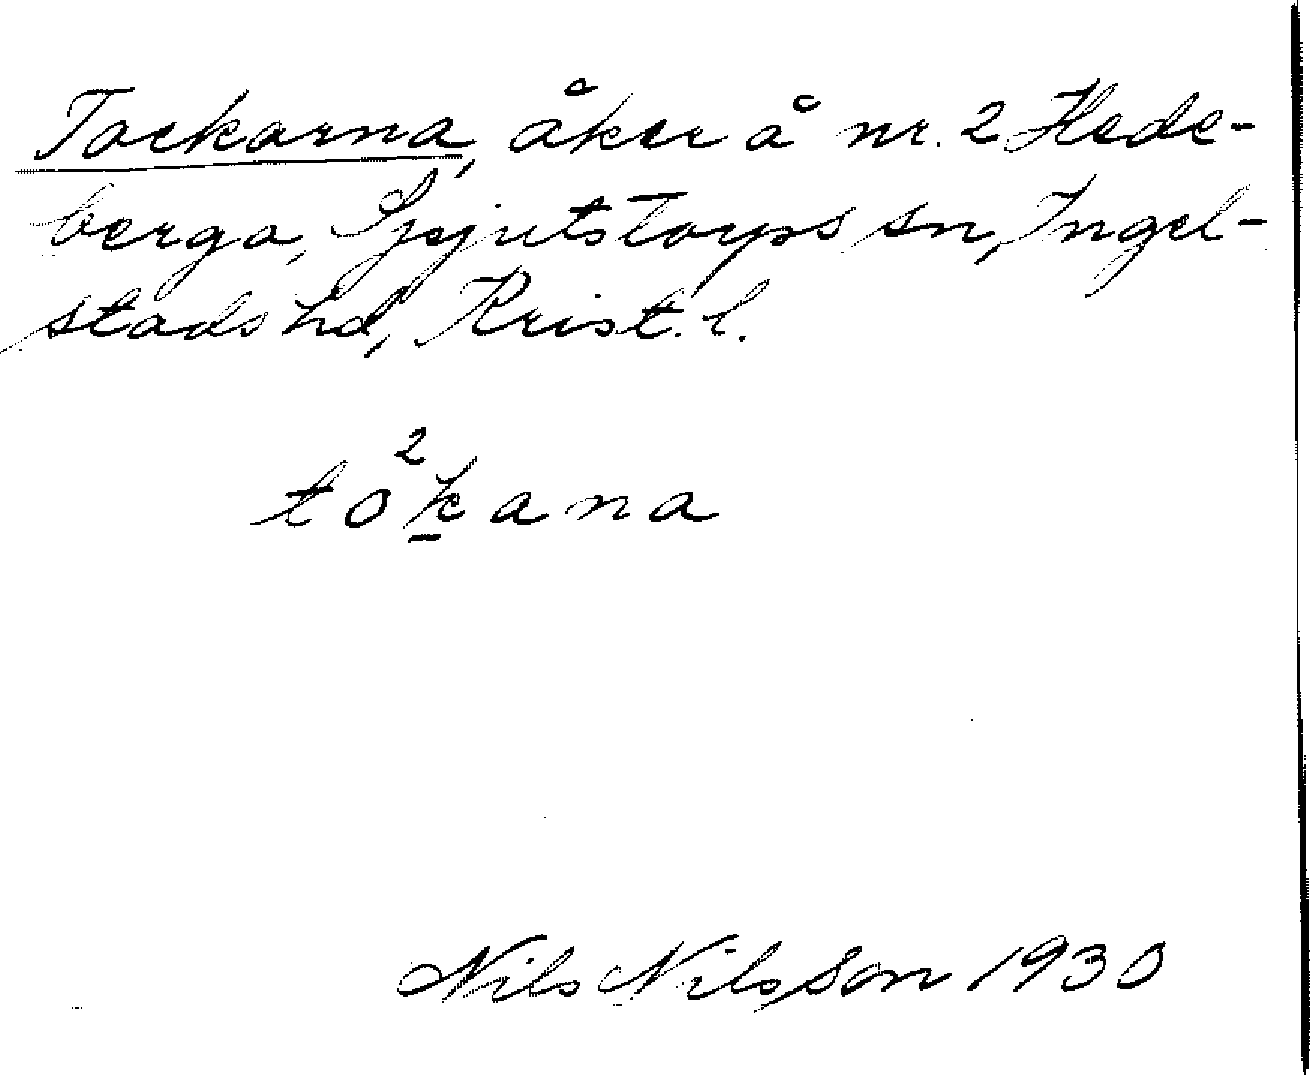 Tockarna, åker å nr. 2 Hede-
berga, Spjutstorps sn, Ingel-
stads hd, Krist. l.
to²k̲ana
Nils Nilsson 1930